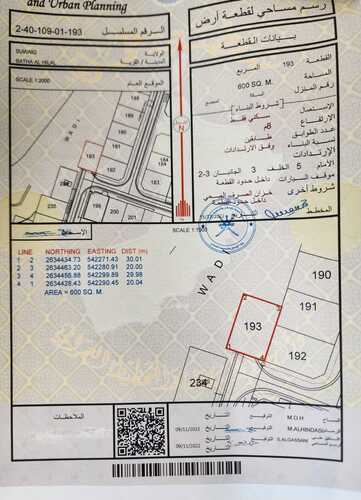 and Urban Planning
رسم مساحي لقطعة أرض
الرقم المسلسل
2-40-109-01-193
بيانات القطعة
SUWAIQ
الولاية
BATHA AL HILAL
المدينة / القرية
القطعة 193 المربع
المساحة 600 SQ. M.
رقم المنزل
SCALE 1:2000
الموقع العام
شروط البناء
الاستعمال سكني فقط
الارتفاع 8م
عدد الطوابق طابقين
نسبة البناء وفق الارتدادات
الارتدادات
الأمام 5 الخلف 3 الجانبان 2-3
موقف السيارات داخل حدود القطعة
شروط أخرى
داخل حدود القطعة
المخطط
WADI
193
192
N
SCALE 1:
LINE NORTHING EASTING DIST (m)
1 2 2634434.73 542271.43 30.01
2 3 2634463.20 542280.91 20.00
3 4 2634456.88 542299.89 29.98
4 1 2634428.43 542290.45 20.04
AREA = 600 SQ. M
WADI
190
191
193
192
234
الملاحظات
M.O.H
التوقيع
09/11/2022
التاريخ
M.ALHINDASI
التوقيع
S.ALGASSANI
09/11/2022
التاريخ